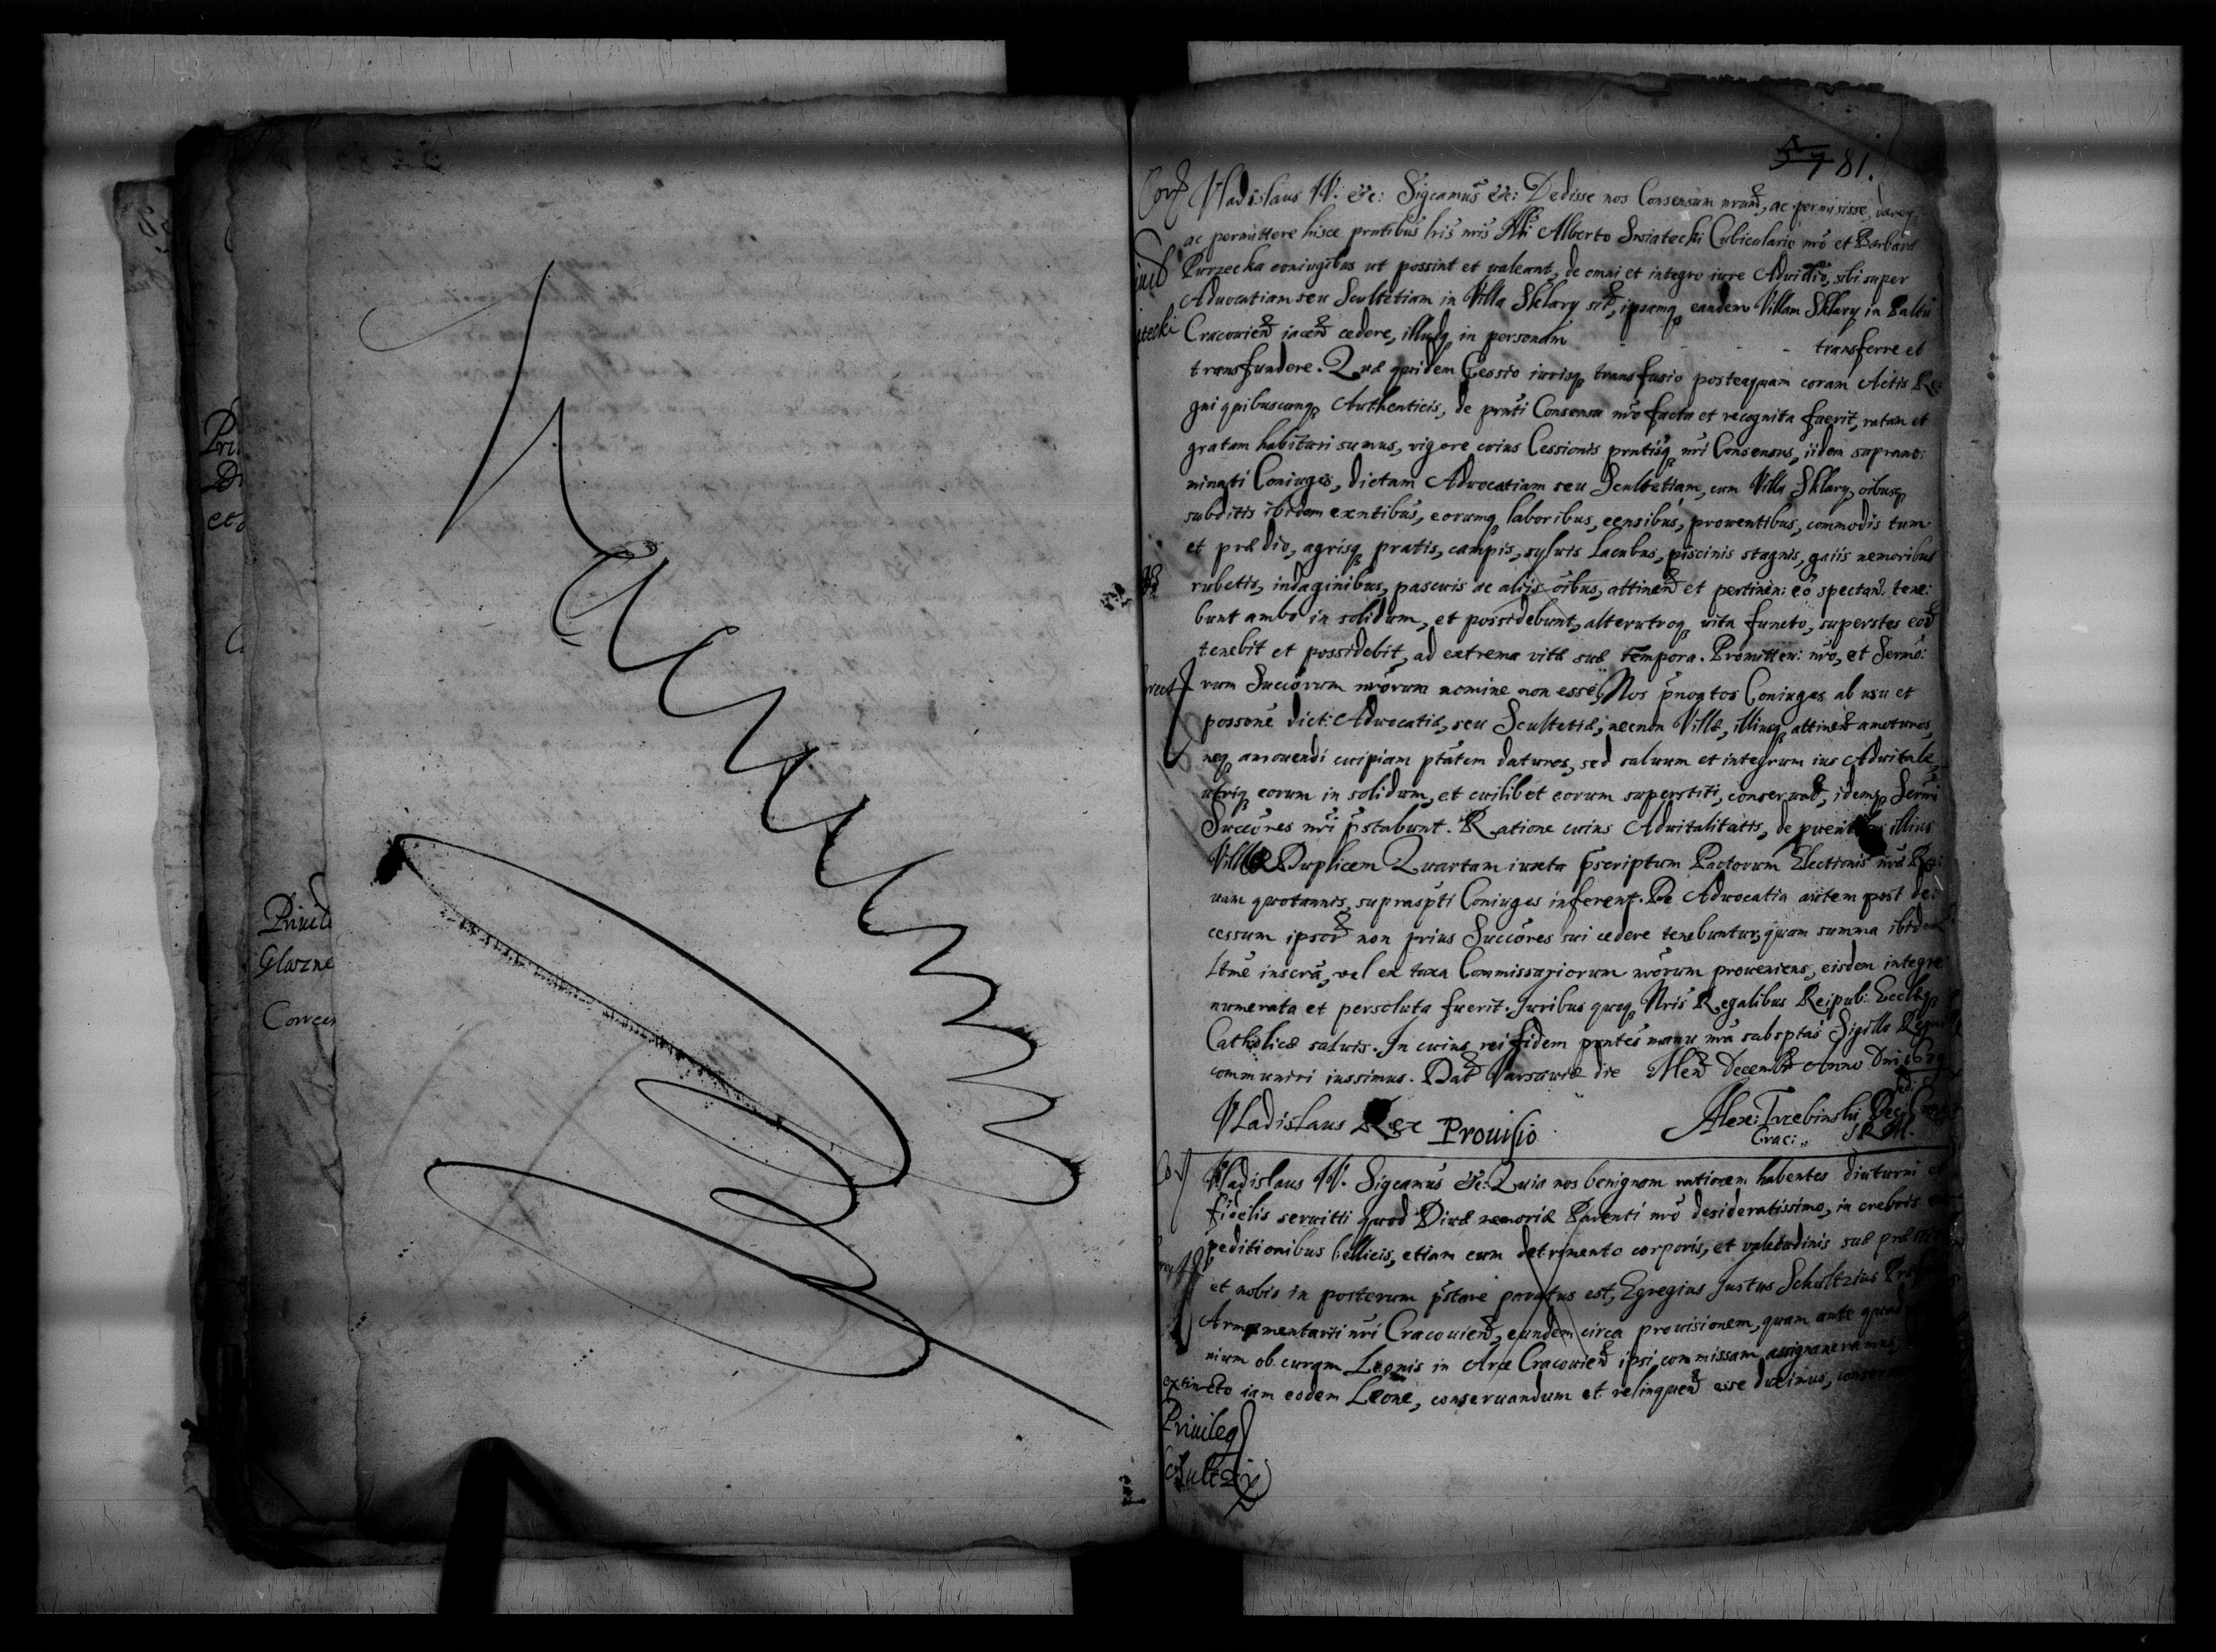 Pri
Di
et
Priuil
Glozne
Correc
Vacuum
57 81.
Cor
Vladislaus IV. &c: Sigcamus &c: Dedisse nos Consensum nrum, ac permisisse, dareq
ac permittere hisce prntibus lris nris Alberto Swiatecki Cubiculario nro et Barbara
Purzecka coniugibus ut possint et valeant, de omni et integro iure Aduitlio, sibi super
Aduocatiam seu Scultetiam in Villa Sklary sit, ipsamq eandem Villam Sklary in Paltu
Cracouien iacen cedere, illudq in personam transferre et
transfundere. Quæ quidem Cessio iurisq transfusio posteaquam coram Actis Re:
gni quibuscunq Authenticis, de prnti Consensu nro facta et recognita fuerit, ratam et
gratam habituri sumus, vigore cuius Cessionis prntisq nri Consensus, iidem suprano:
minati Coniuges, dictam Aduocatiam seu Scultetiam, cum Villa Sklary, oibusq
subditis ibidem exntibus, eorumq laboribus, censibus, prouentibus, commodis tum
et prædio, agrisq pratis, campis, syluis Lacubus, piscinis stagnis, gaiis nemoribus
rubetis, indaginibus, pascuis ac aliis oibus, attinen et pertinen: eo spectan. tene:
bunt ambo in solidum, et possidebunt, alterutroq vita functo, superstes eod
tenebit et possidebit, ad extrema vitæ suæ tempora. Promitten: nro, et Sermo:
rum Succorum nrorum nomine non esse Nos pnotos Coniuges ab usu et
possone dict: Aduocatiæ, seu Scultetiæ, necnon Villæ, illiusq attinen amoturos,
neq amouendi cuipiam ptatem daturos, sed saluum et integrum ius Aduitale
utriq eorum in solidum, et cuilibet eorum superstiti, conseruad, idemq Sermi
Succores nri pstabunt. Ratione cuius Aduitalitatis, de prouentibus illius
Villæ Duplicem Quartam iuxta pscriptum Pactorum Electionis nræ Re:
uam quotannis, supraspti Coniuges inferent. De Aduocatia autem post de:
cessum ipsor non prius Succores sui cedere tenebuntur, quam summa ibidem
Ltme inscra, vel ex taxa Commissariorum nrorum proueniens, eisdem integre
numerata et persoluta fuerit. Juribus quoq Nris Regalibus Reipub: Ecclæq
Catholicæ saluis. In cuius rei fidem prntes manu nra subsptas Sigillo Regni
communiri iussimus. Dat Varsauiæ die Men Decemb Anno Dni
Vladislaus Rex
Alex: Trzebinski
Crac: S R M.
Prouisio
Cor
Vladislaus IV. Sigcamus &c: Quia nos benignam rationem habentes diuturni et
fidelis seruitii quod Diuæ memoriæ Parenti nro desideratissimo, in crebris
peditionibus bellicis, etiam cum detrimento corporis, et valetudinis suæ
et nobis in posterum pstare paratus est, Egregius Justus Schultzius
Armamentarii nri Cracouien, eundem circa prouisionem, quam ante
nium ob curam Leonis in Arce Cracouien ipsi commissam assignaueramus,
extincto iam eodem Leone, conseruandum et relinquen esse duximus,
Priuileg
Schultzii